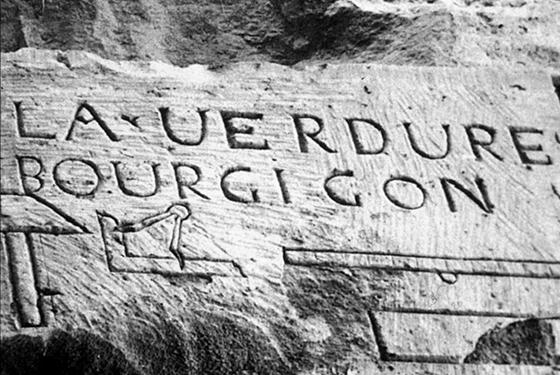 LA·UERDURE
BOURGIGON